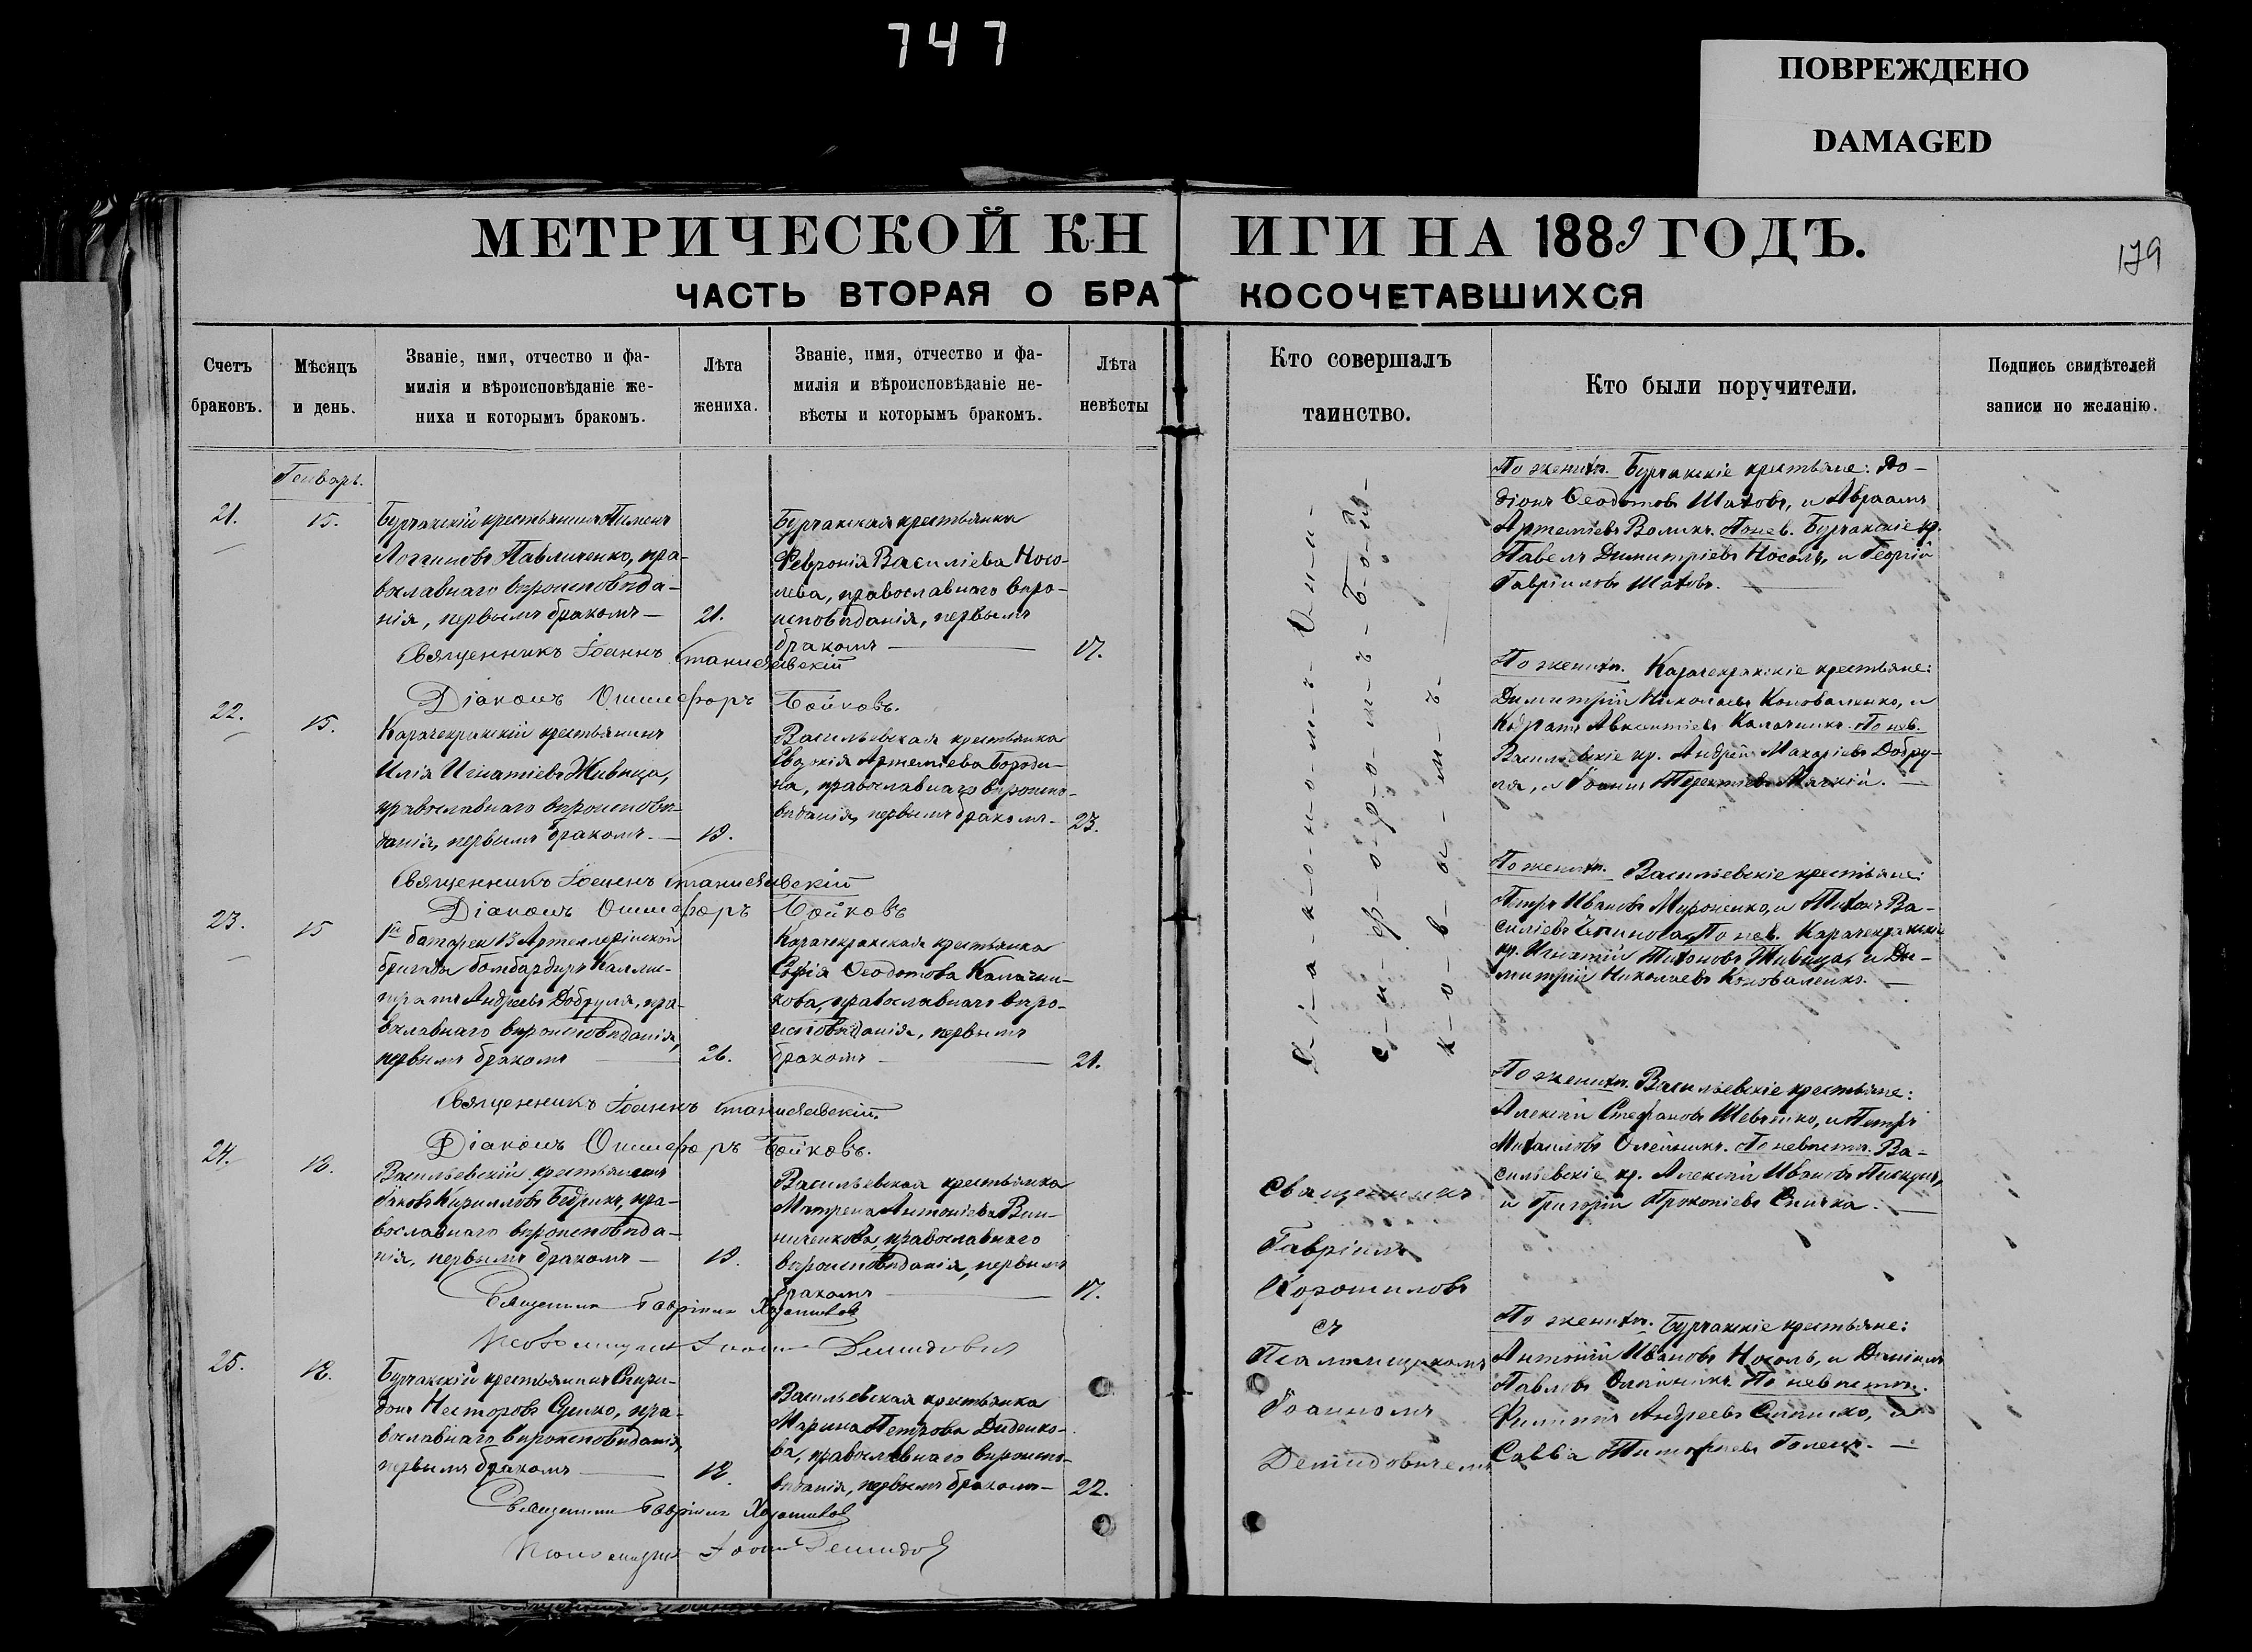 747
ПОВРЕЖДЕНО
DAMAGED
МЕТРИЧЕСКОЙ КНИГИ НА 1889 ГОДЪ.
179
ЧАСТЬ ВТОРАЯ О БРАКОСОЧЕТАВШИХСЯ
Счетъ браковъ.
Мѣсяцъ и день.
Званіе, имя, отчество и фа-
милія и вѣроисповѣданіе же-
ниха и которымъ бракомъ.
Лѣта жениха.
Званіе, имя, отчество и фа-
милія и вѣроисповѣданіе не-
вѣсты и которымъ бракомъ.
Лѣта невѣсты
Кто совершалъ таинство.
Кто были поручители.
Подпись свидѣтелей
записи по желанію.
Генварь.
21.
15.
Бурчакскій крестьянинъ Пименъ
Логгиновъ Павличенко, пра-
вославнаго вѣроисповѣда-
нія, первымъ бракомъ —
21.
Бурчакская крестьянка
Февронія Василіева Носо-
лева, православнаго вѣро-
исповѣданія, первымъ
бракомъ —
17.
По женихѣ. Бурчакскіе крестьяне: Ро-
діонъ Ѳеодотовъ Шаховъ, и Авраамъ
Артеміевъ Воликъ. По нев. Бурчакскіе кр.
Павелъ Димитріевъ Носоль, и Георгій
Гавріиловъ Шаховъ.
Священникъ Іоаннъ Станиславскій
Діаконъ Онисифоръ Бойковъ.
22.
15.
Карачекракскій крестьянинъ
Илія Игнатіевъ Живица,
православнаго вѣроисповѣ-
данія, первымъ бракомъ. —
19.
Васильевская крестьянка
Евдокія Артеміева Бороди-
на, православнаго вѣроиспо-
вѣданія, первымъ бракомъ. —
23.
По женихѣ. Карачекракскіе крестьяне:
Димитрій Николаевъ Коноваленко, и
Кодратъ Авксентіевъ Калачникъ. По нев.
Васильевскіе кр. Андрей Макаріевъ Добру-
ля, и Іоаннъ Терентіевъ Мягкій. —
Священникъ Іоаннъ Станиславскій
Діаконъ Онисифоръ Бойковъ
23.
15
1й батареи 13 Артиллерійской
бригады бомбардиръ Каллис-
тратъ Андреевъ Добруля, пра-
вославнаго вѣроисповѣданія,
первымъ бракомъ
26.
Карачекракская крестьянка
Софія Ѳеодотова Калачни-
кова, православнаго вѣро-
исповѣданія, первымъ
бракомъ —
21.
Діакономъ Они-
сифоромъ Бой-
ковымъ
По женихѣ. Васильевскіе крестьяне:
Петръ Ивановъ Мироненко, и Тихонъ Ва-
силіевъ По нев. Карачекракскіе
кр. Игнатій Тихоновъ Живица, и Ди-
митрій Николаевъ Коноваленко. —
Священникъ Іоаннъ Станиславскій.
Діаконъ Онисифоръ Бойковъ.
24.
18.
Васильевскій крестьянинъ
Іаковъ Кирилловъ Бедрикъ, пра-
вославнаго вѣроисповѣда-
нія, первымъ бракомъ —
19.
Васильевская крестьянка
Матрена Антоніева Вин-
ниченкова, православнаго
вѣроисповѣданія, первымъ
бракомъ —
17.
Священникъ
Гавріилъ
Хорошиловъ
съ
Псаломщикомъ
Іоанномъ
Демидовичемъ
По женихѣ. Васильевскіе крестьяне:
Алексій Стефановъ Шевченко, и Петръ
Михаиловъ Олейникъ. По невѣстѣ. Ва-
сильевскіе кр. Алексій Ивановъ Пискунъ,
и Григорій Прокопіевъ Спичка. —
Священникъ Гавріилъ Хорошиловъ
Псаломщикъ Іоаннъ Демидовичъ
25.
18.
Бурчакскій крестьянинъ Спири-
донъ Несторовъ Сушко, пра-
вославнаго вѣроисповѣданія,
первымъ бракомъ —
18.
Васильевская крестьянка
Марина Петрова Диденко-
ва, православнаго вѣроиспо-
вѣданія, первымъ бракомъ —
22.
По женихѣ. Бурчакскіе крестьяне:
Антоній Ивановъ Носоль, и Даніилъ
Павловъ Олейникъ. По невѣстѣ.
Филиппъ Андреевъ и
Савва Тимофеевъ Голецъ. —
Священникъ Гавріилъ Хорошиловъ
Псаломщикъ Іоаннъ Демидов